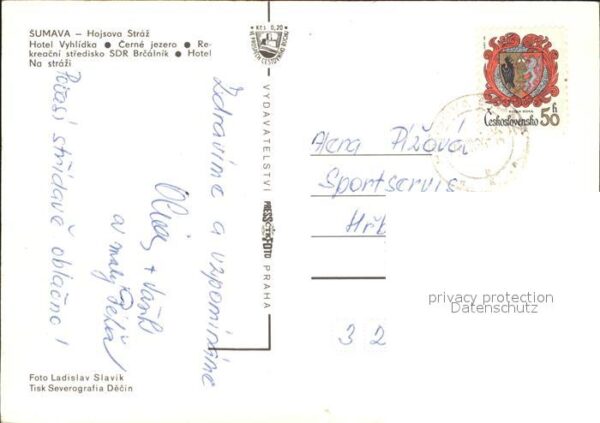 ŠUMAVA – Hojsova Stráž
Hotel Vyhlídka ● Černé jezero ● Re-
kreační středisko SDR Brčálník ● Hotel
Na stráži
Kčs 0,20
Zdravíme a vzpomínáme
a malý Péťa
Počasí střídavě oblačno!
VYDAVATELSTVÍ PRESSFOTO PRAHA
Československo 50 h
Sportservis
3 2
privacy protection
Datenschutz
Foto Ladislav Slavík
Tisk Severografia Děčín